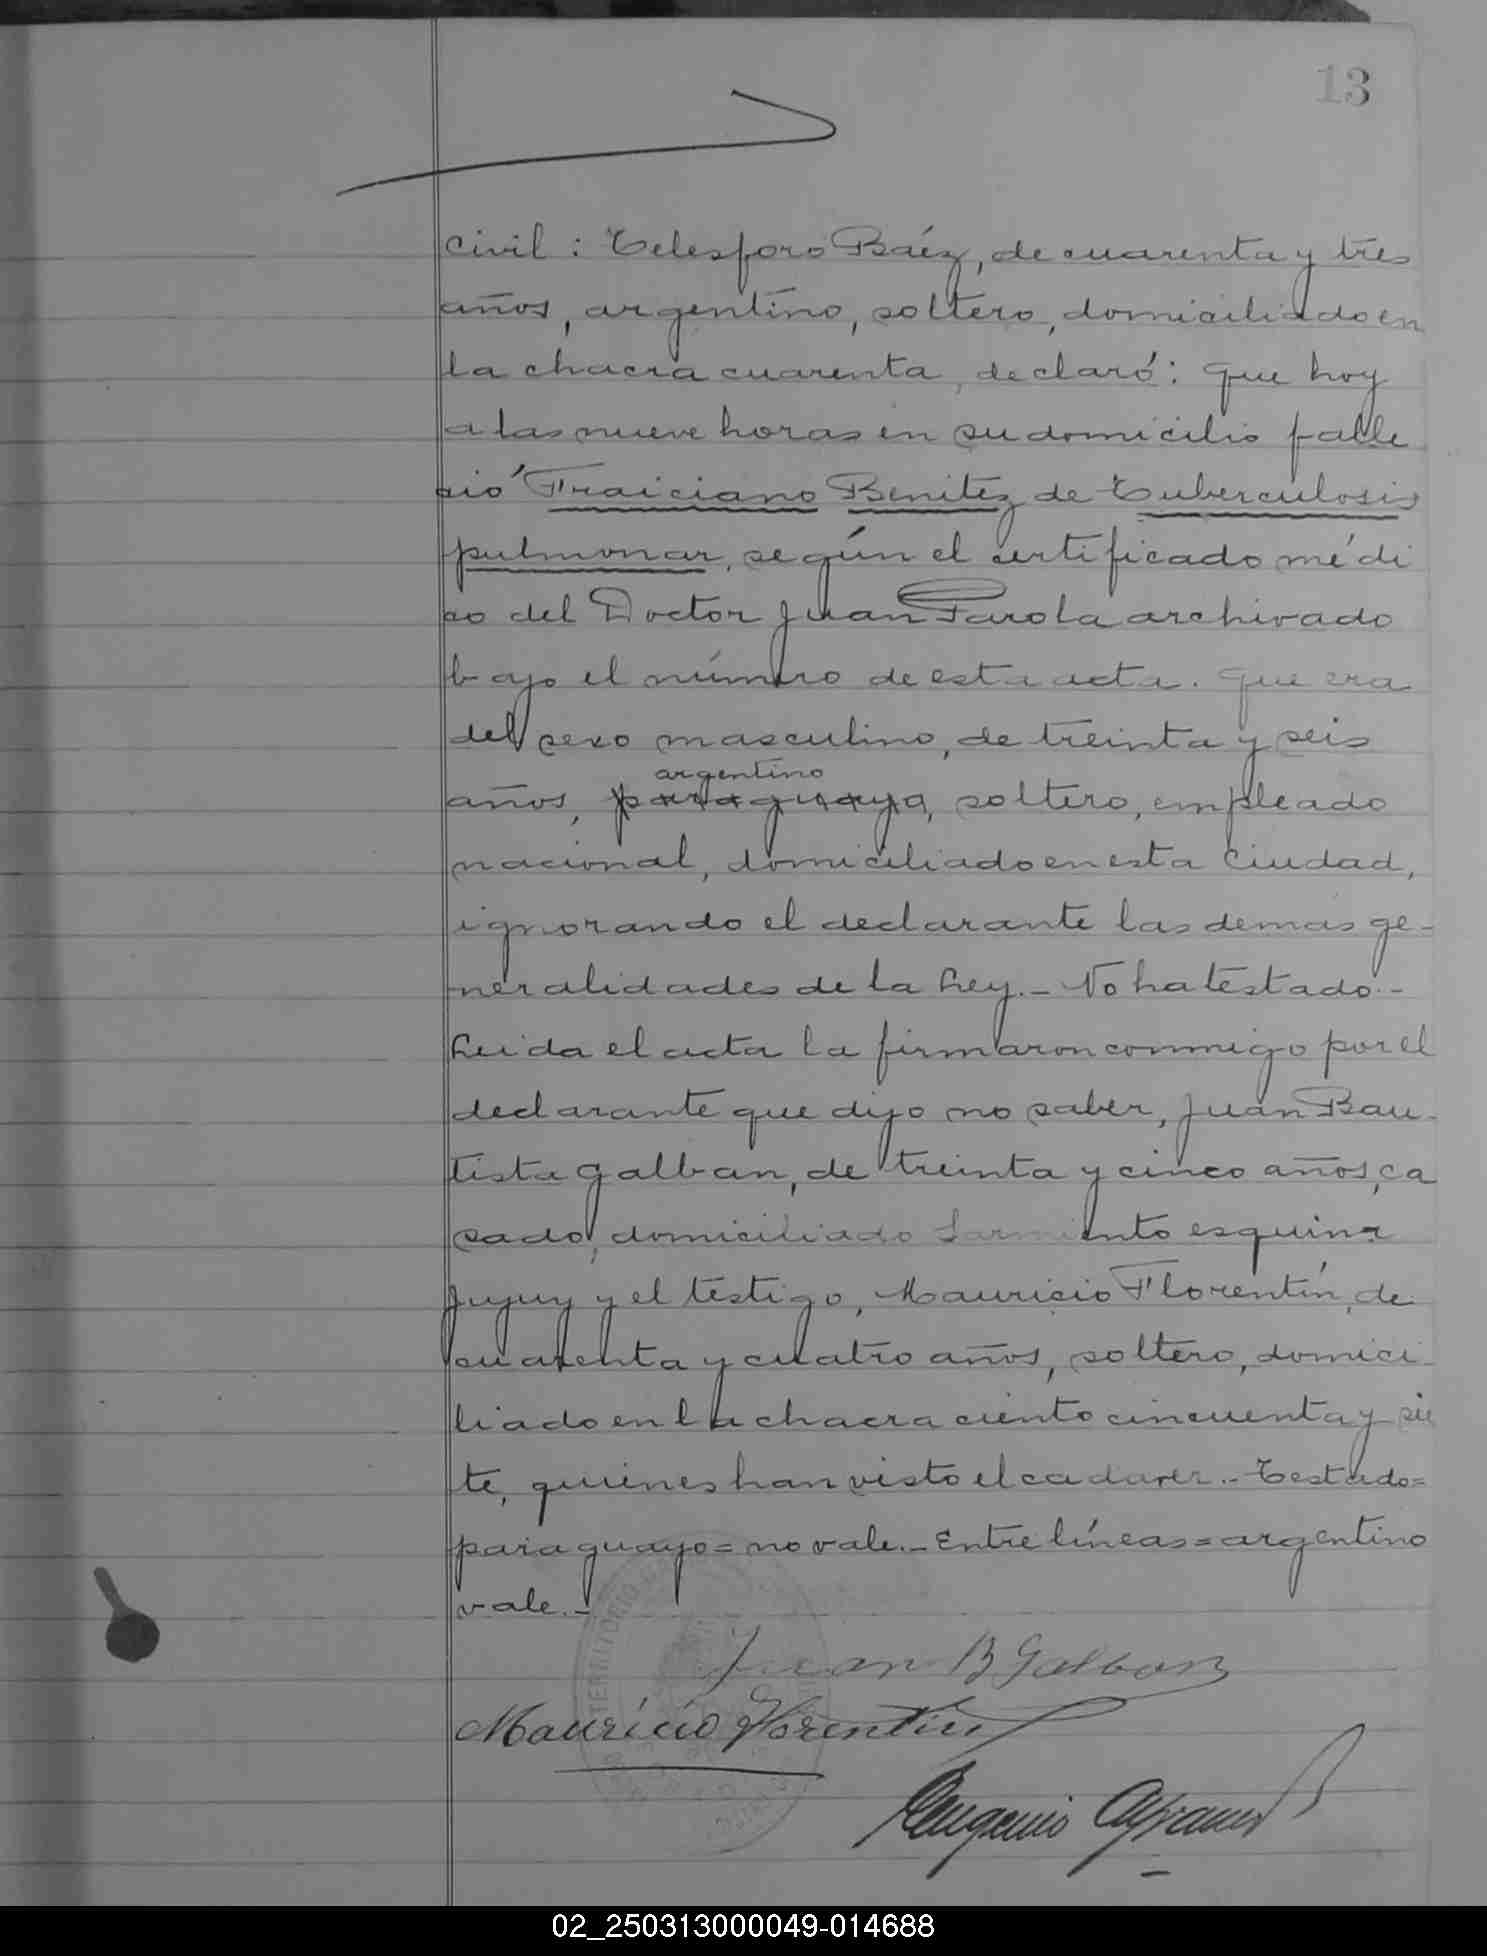 13
civil: Telesforo Báez, de cuarenta y tres
años, argentino, soltero, domiciliado en
la chacra cuarenta, declaró: que hoy
a las nueve horas en su domicilio falle
ció Fraiciano Benitez de Tuberculosis
pulmonar, según el certificado médi
co del Doctor Juan Parola archivado
bajo el número de esta acta. Que era
del sexo masculino, de treinta y seis
argentino
años, paraguayo, soltero, empleado
nacional, domiciliado en esta Ciudad,
ignorando el declarante las demás ge-
neralidades de la Ley.- No ha testado.-
Leida el acta la firmaron conmigo por el
declarante que dijo no saber, Juan Bau-
tista Galban, de treinta y cinco años, ca
sado, domiciliado Sarmiento esquina
Jujuy y el testigo, Mauricio Florentín, de
cuarenta y cuatro años, soltero, domici-
liado en la chacra ciento cincuenta y sie
te, quienes han visto el cadaver.- Testado=
paraguayo= no vale.- Entre líneas= argentino
vale.-
Juan B Galban
Mauricio Florentin
Eugenio
TERRITORIO
02_250313000049-014688